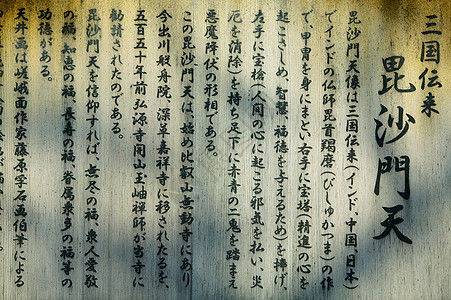 三国伝来
毘沙門天
毘沙門天像は三国伝来(インド、中国、日本)
でインドの仏師毘首羯磨(びしゅかつま)の作
で、甲冑を身にまとい右手に宝塔(精進の心を
起こさしめ、智慧、福徳を与えるためを捧げ、
左手に宝槍(人間の心に起こる邪気を払い、災
厄を消除)を持ち足下に赤青の二鬼を踏まえ
悪魔降伏の形相である。
この毘沙門天は、始め比叡山無動寺にあり
今出川般舟院、深草嘉祥寺に移されたのを、
五百五十年前弘源寺開山玉岫禅師が当寺に
勧請されたのである。
毘沙門天を信仰すれば、無尽の福、衆人愛敬
の福、知恵の福、長寿の福、眷属衆多の福等の
功徳がある。
天井画は嵯峨面作家藤原孚石画伯筆による